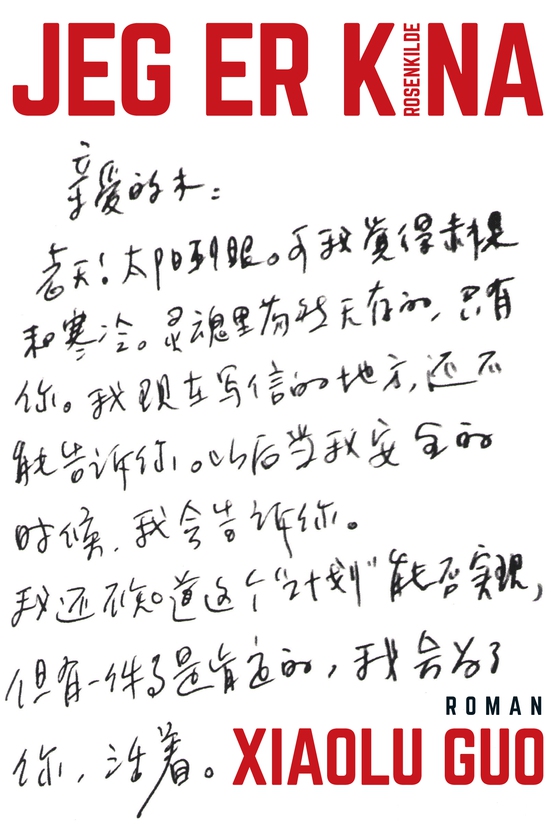 JEG ER KINA
ROSENKILDE
亲爱的木:
老天!太阳刺眼。可我觉得赤裸
和寒冷。灵魂里 存的,只有
你。我现在写信的地方,还不
能告诉你。以后当我安全的
时候,我会告诉你。
我还不知道这个“计划”能否实现,
但有一件事是肯定的,我会为了
你,活着。
ROMAN
XIAOLU GUO